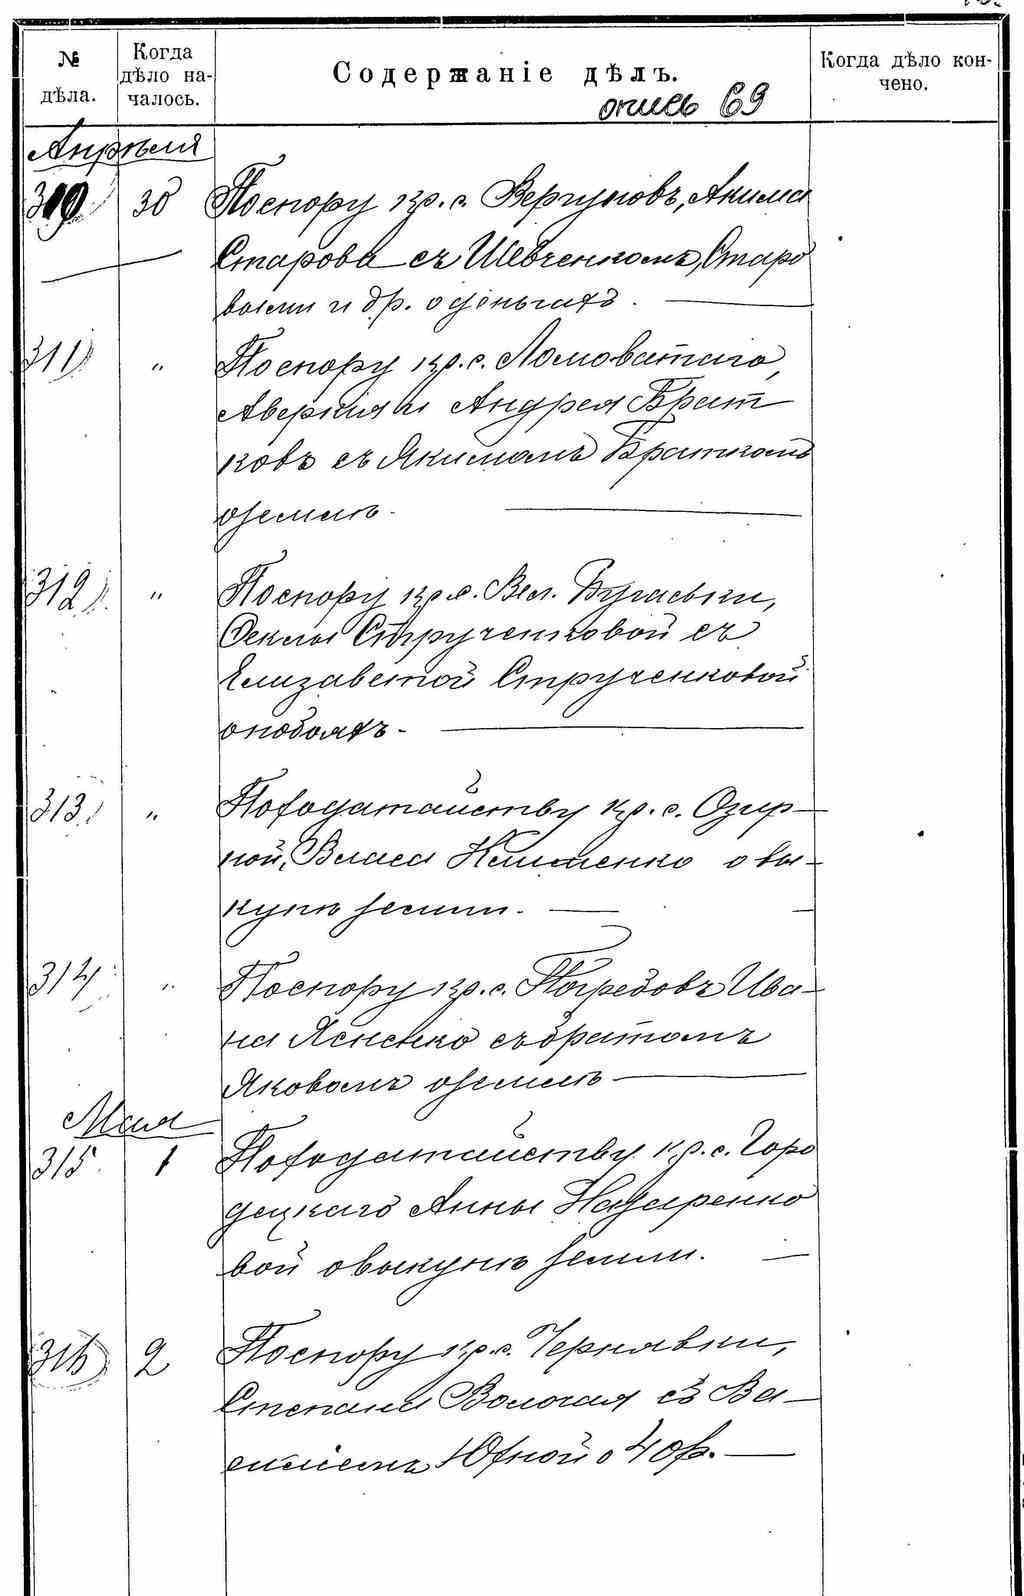 № дѣла.
Когда дѣло на-чалось.
Содержаніе дѣлъ.
Когда дѣло кон-чено.
опись 69
Апрѣля
310 30 По спору кр. с. Вергуновъ, Акима
Старова съ Шевченкомъ, Старо
выми и др. о деньгахъ.
311) " По спору кр. с. Ломоватаго,
Аверкія и Андрея Брат
ковъ съ Якимомъ Браткомъ
о землѣ.
312). " По спору кр. с. Вел. Бугаевки,
Феклы Струченковой съ
Елизаветой Струченковой
о побояхъ.
313) " По ходатайству кр. с. Озир-
ной, Власа Клименко о вы-
купѣ земли.
314 " По спору кр. с. Погребовъ Ива-
на Ясненко съ братомъ
Яковомъ о землѣ
Мая
315 1 По ходатайству кр. с. Горо
децкаго Анны Назаренко
вой о выкупѣ земли.
316 2 По спору кр. с. Чернявки,
Степана Волочая съ Ва-
силіемъ Юхной о 40 р.